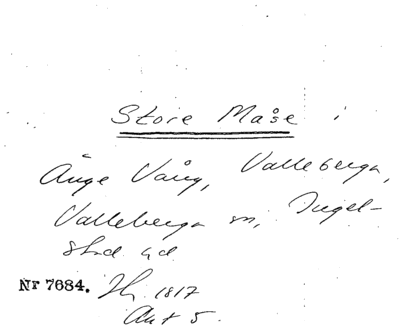 Store Måse i
Änge Vång, Valleberga,
Valleberga sn, Ingel-
stad hd
Nr 7684. Hs 1817
Akt 5.